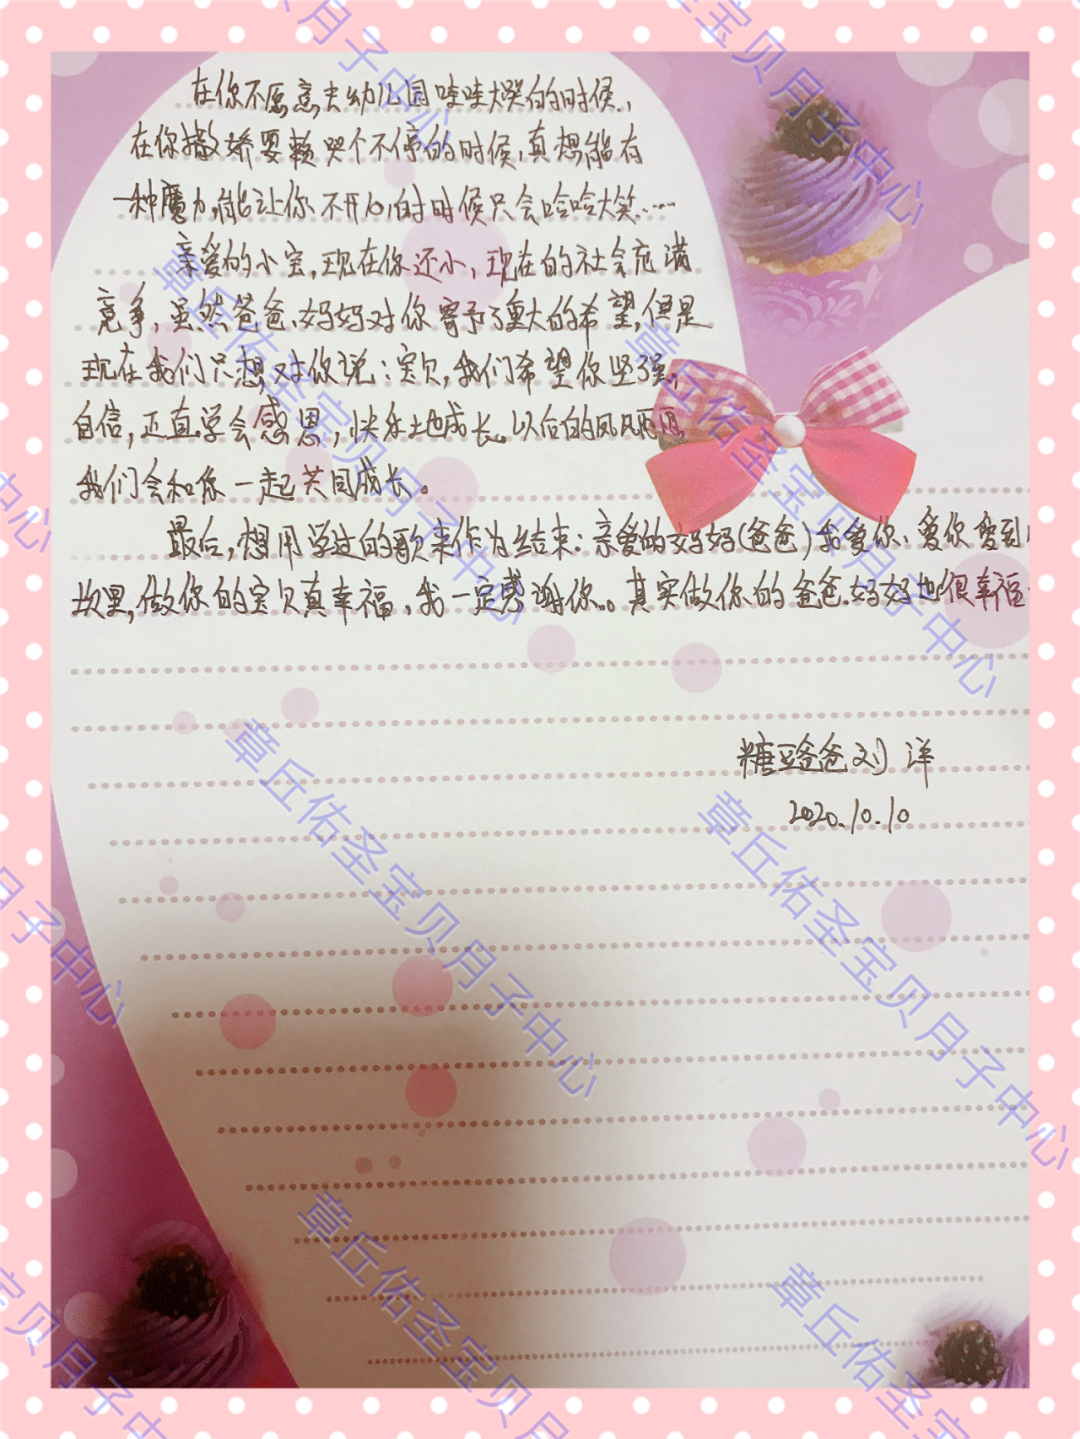 在你不愿意去幼儿园哇哇大哭的时候,
在你撒娇耍赖哭个不停的时候,真想能有
一种魔力,能让你不开心的时候只会哈哈大笑……
亲爱的小宝,现在你还小,现在的社会充满
竞争,虽然爸爸、妈妈对你寄予了重大的希望,但是
现在我们只想对你说:宝贝,我们希望你坚强,
自信,正直学会感恩,快乐地成长。以后的风风雨雨
我们会和你一起共同成长。
最后,想用学过的歌来作为结束:亲爱的妈妈(爸爸)我爱你、爱你爱到
坎里,做你的宝贝真幸福,我一定感谢你。其实做你的爸爸、妈妈也很幸福
糖豆爸爸刘洋
2020.10.10
章丘佑圣宝贝月子中心
章丘佑圣宝贝月子中心
章丘佑圣宝贝月子中心
章丘佑圣宝贝月子中心
章丘佑圣宝贝月子中心
章丘佑圣宝贝月子中心